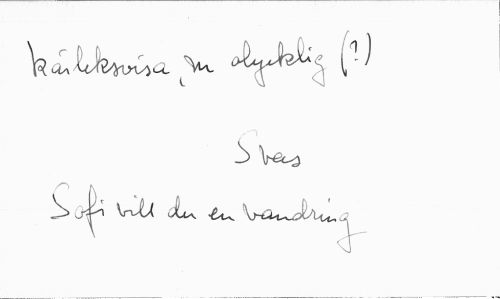 kärleksvisa, olycklig (?)
Svers
Sofi vill du en vandring